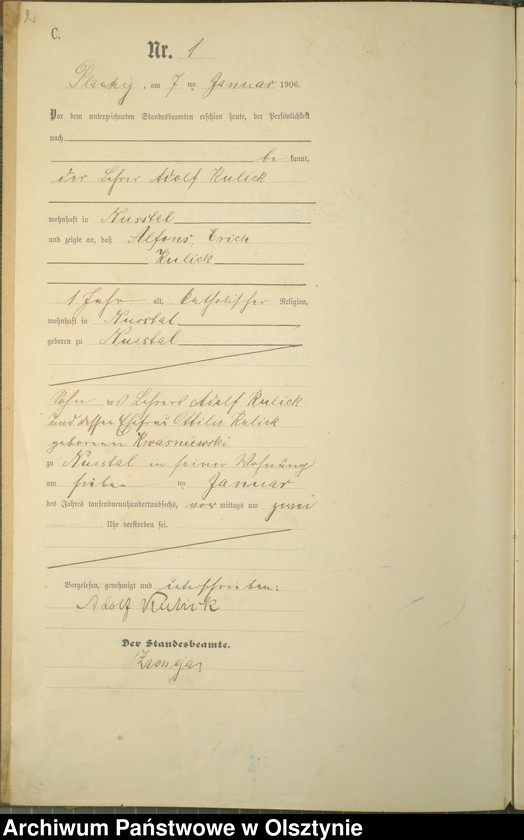 2
C.
Nr. 1
Plautzig, am 7 ten Januar 1906.
Vor dem unterzeichneten Standesbeamten erschien heute, der Persönlichkeit
nach
be kannt,
der Lehrer Adolf Kulick
wohnhaft in Nusstal
und zeigte an, daß Alfons, Erich
Kulick
1 Jahr alt, katholischer Religion,
wohnhaft in Nusstal
geboren zu Nusstal
Sohn des Lehrers Adolf Kulick
und dessen Ehefrau Ottilie Kulick
geborenen Kwasniewski
zu Nusstal in seiner Wohnung
am sieben ten Januar
des Jahres tausendneunhundertundsechs, vor mittags um zwei
Uhr verstorben sei.
Vorgelesen, genehmigt und unterschrieben:
Adolf Kulick
Der Standesbeamte.
Archiwum Państwowe w Olsztynie